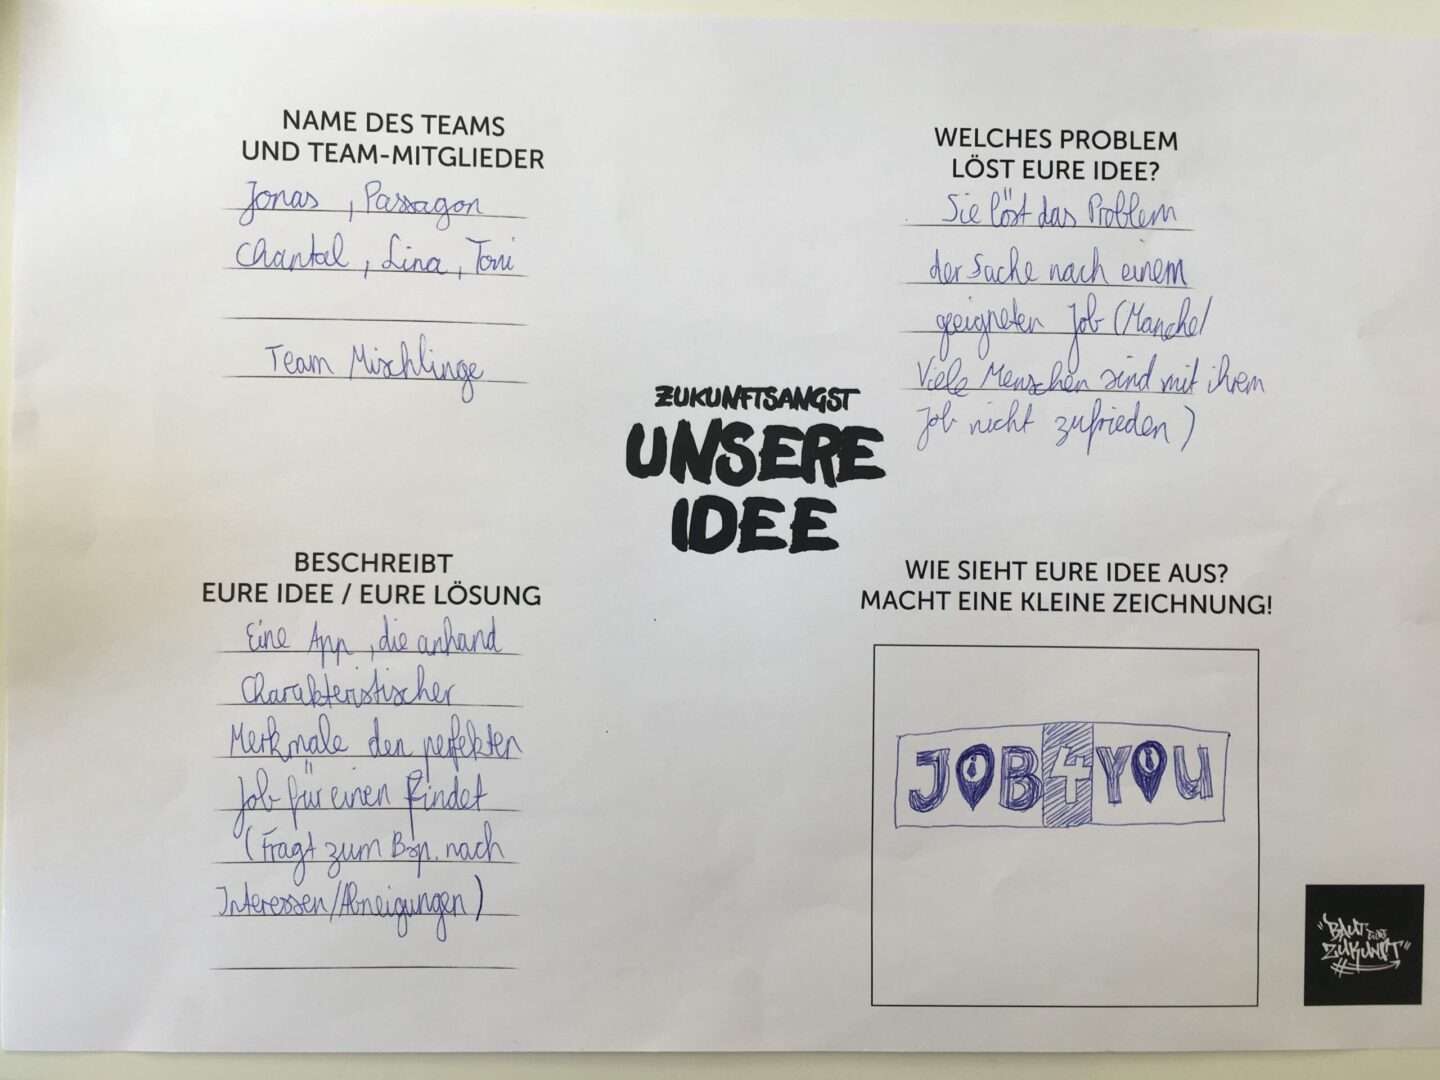 NAME DES TEAMS
UND TEAM-MITGLIEDER
Jonas, Passagon
Chantal, Lina, Toni
Team Mischlinge
WELCHES PROBLEM
LÖST EURE IDEE?
Sie löst das Problem
der Suche nach einem
geeigneten Job (Manche/
Viele Menschen sind mit ihrem
Job nicht zufrieden)
ZUKUNFTSANGST
UNSERE
IDEE
BESCHREIBT
EURE IDEE / EURE LÖSUNG
Eine App, die anhand
Charakteristischer
Merkmale den perfekten
Job für einen findet
(Fragt zum Bsp. nach
Interessen/Abneigungen)
WIE SIEHT EURE IDEE AUS?
MACHT EINE KLEINE ZEICHNUNG!
JOB4YOU
"BAUT EURE
ZUKUNFT"
#